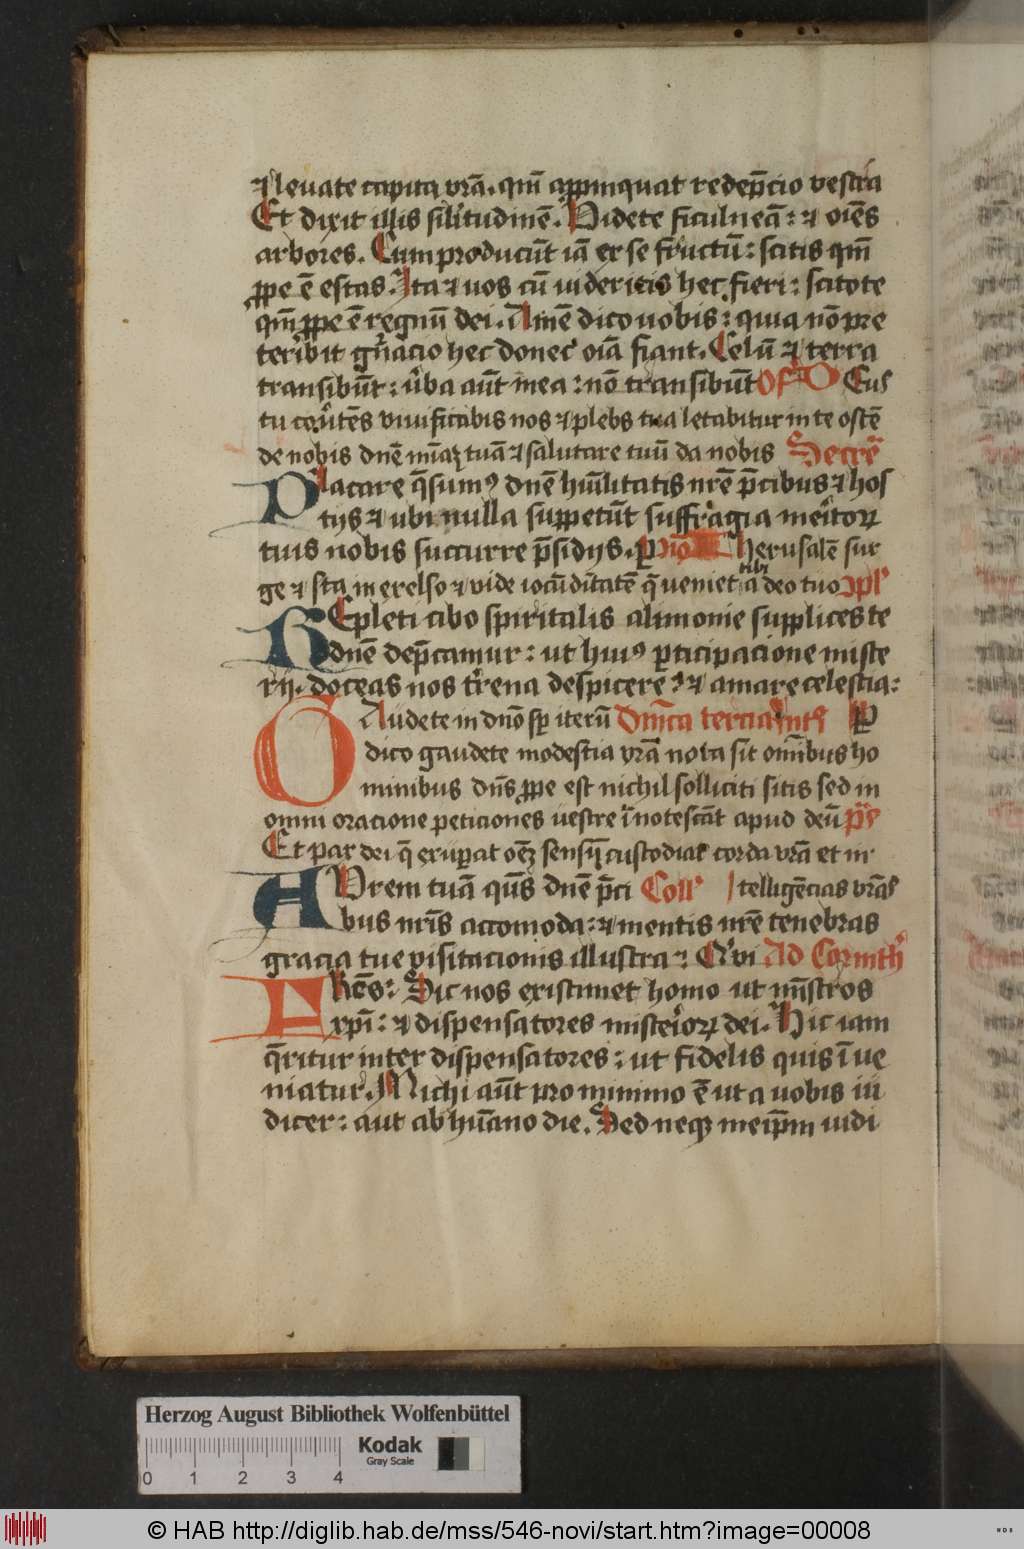 ⁊ leuate capita vr̄a. qm̄ appinquat redēpcio vestra
Et dixit illis silitudinē. Videte ficulneā: ⁊ om̄es
arbores. Cum producūt iā ex se fructū: scitis qm̄
ꝓpe ē estas. Ita ⁊ uos cū uideritis hec fieri: scitote
qm̄ ꝓpe ē regnū dei. Amē dico uobis: quia nō pre
teribit gn̄acio hec donec oīa fiant. Celū ⁊ terra
transibūt: u̾ba aūt mea: nō transibūt Off̄ DEus
tu cōu̾tēs viuificabis nos ⁊ plebs tua letabitur in te ostē
de nobis dn̄e mīaꝫ tuā ⁊ salutare tuū da nobis Secrē
Placare q̄sumꝰ dn̄e hūilitatis nr̄e p̄cibus ⁊ hos
tijs ⁊ ubi nulla suppetūt suffragia meritoꝝ
tuis nobis succurre p̄sidijs. ꝑ Cō̄ Iherusalē sur
ge ⁊ sta in excelso ⁊ vide iocūditatē q̄ ueniet tibi a deo tuo Ↄpl̄
REpleti cibo spiritalis alimonie supplices te
dn̄e dep̄camur: ut huiꝰ ꝑticipacione miste
rij. doceas nos tr̄rena despicere: ⁊ amare celestia:
GAudete in dn̄o sꝑ iterū Dn̄ica tercia
dico gaudete modestia vr̄a nota sit omībus ho
minibus dn̄s ꝓpe est nichil solliciti sitis sed in
omni oracione peticiones uestre īnotescāt apud deū p̄s
Et pax dei q̄ exuꝑat oēꝫ sensū custodiat corda vr̄a et in
AUrem tuā qs̄ dn̄e p̄ci Coll̄ ītelligēcias vr̄as
bus nr̄is accomoda: ⁊ mentis nr̄e tenebras
gracia tue visitacionis illustra: Qui Ad Corinth̄
FRēs: Sic nos existimet homo ut mīstros
xp̄i: ⁊ dispensatores misterioꝝ dei. Hic iam
q̄ritur inter dispensatores: ut fidelis quis īue
niatur. Michi aūt pro minimo ē ut a uobis iu
dicer: aut ab hūano die. Sed neqꝫ meip̄m iudi
Herzog August Bibliothek Wolfenbüttel
Kodak
Gray Scale
0 1 2 3 4
© HAB http://diglib.hab.de/mss/546-novi/start.htm?image=00008